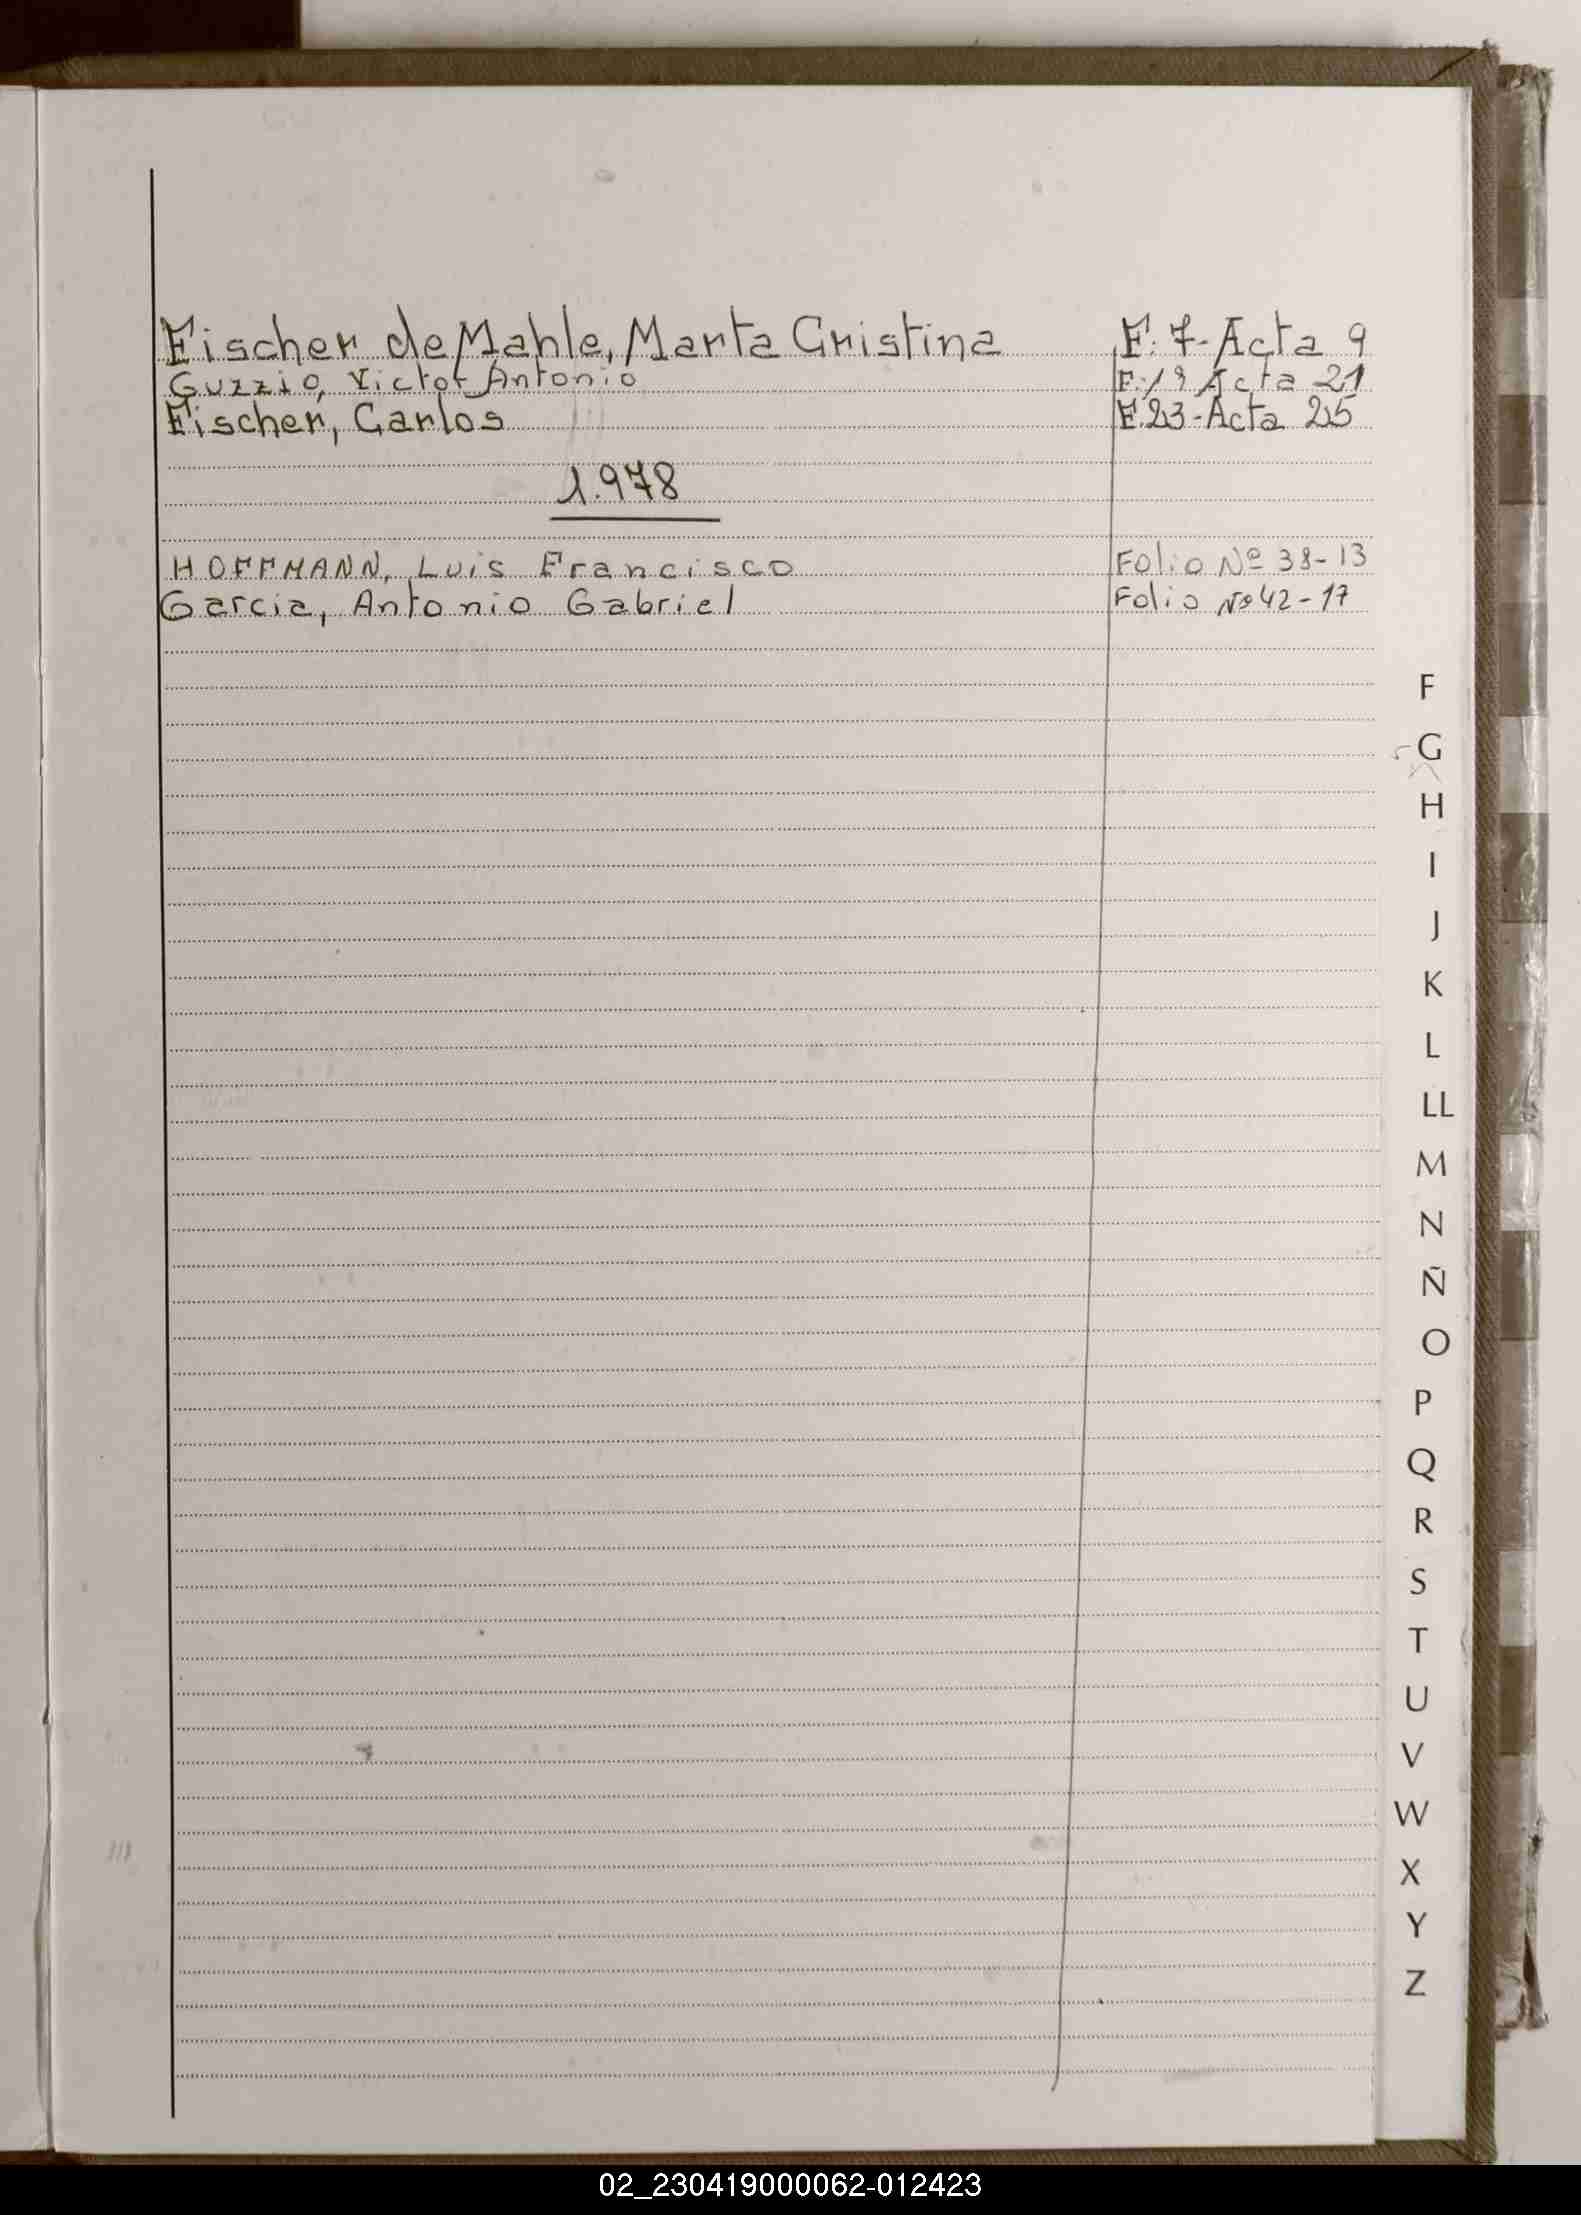 Fischer de Mahle, Marta Cristina F: 7-Acta 9
Guzzio, Victor Antonio F:19 Acta 21
Fischer, Carlos F.23-Acta 25
1.978
HOFFMANN, Luis Francisco Folio Nº 38-13
Garcia, Antonio Gabriel Folio Nº 42-17
F
G
H
I
J
K
L
LL
M
N
Ñ
O
P
Q
R
S
T
U
V
W
X
Y
Z
02_230419000062-012423